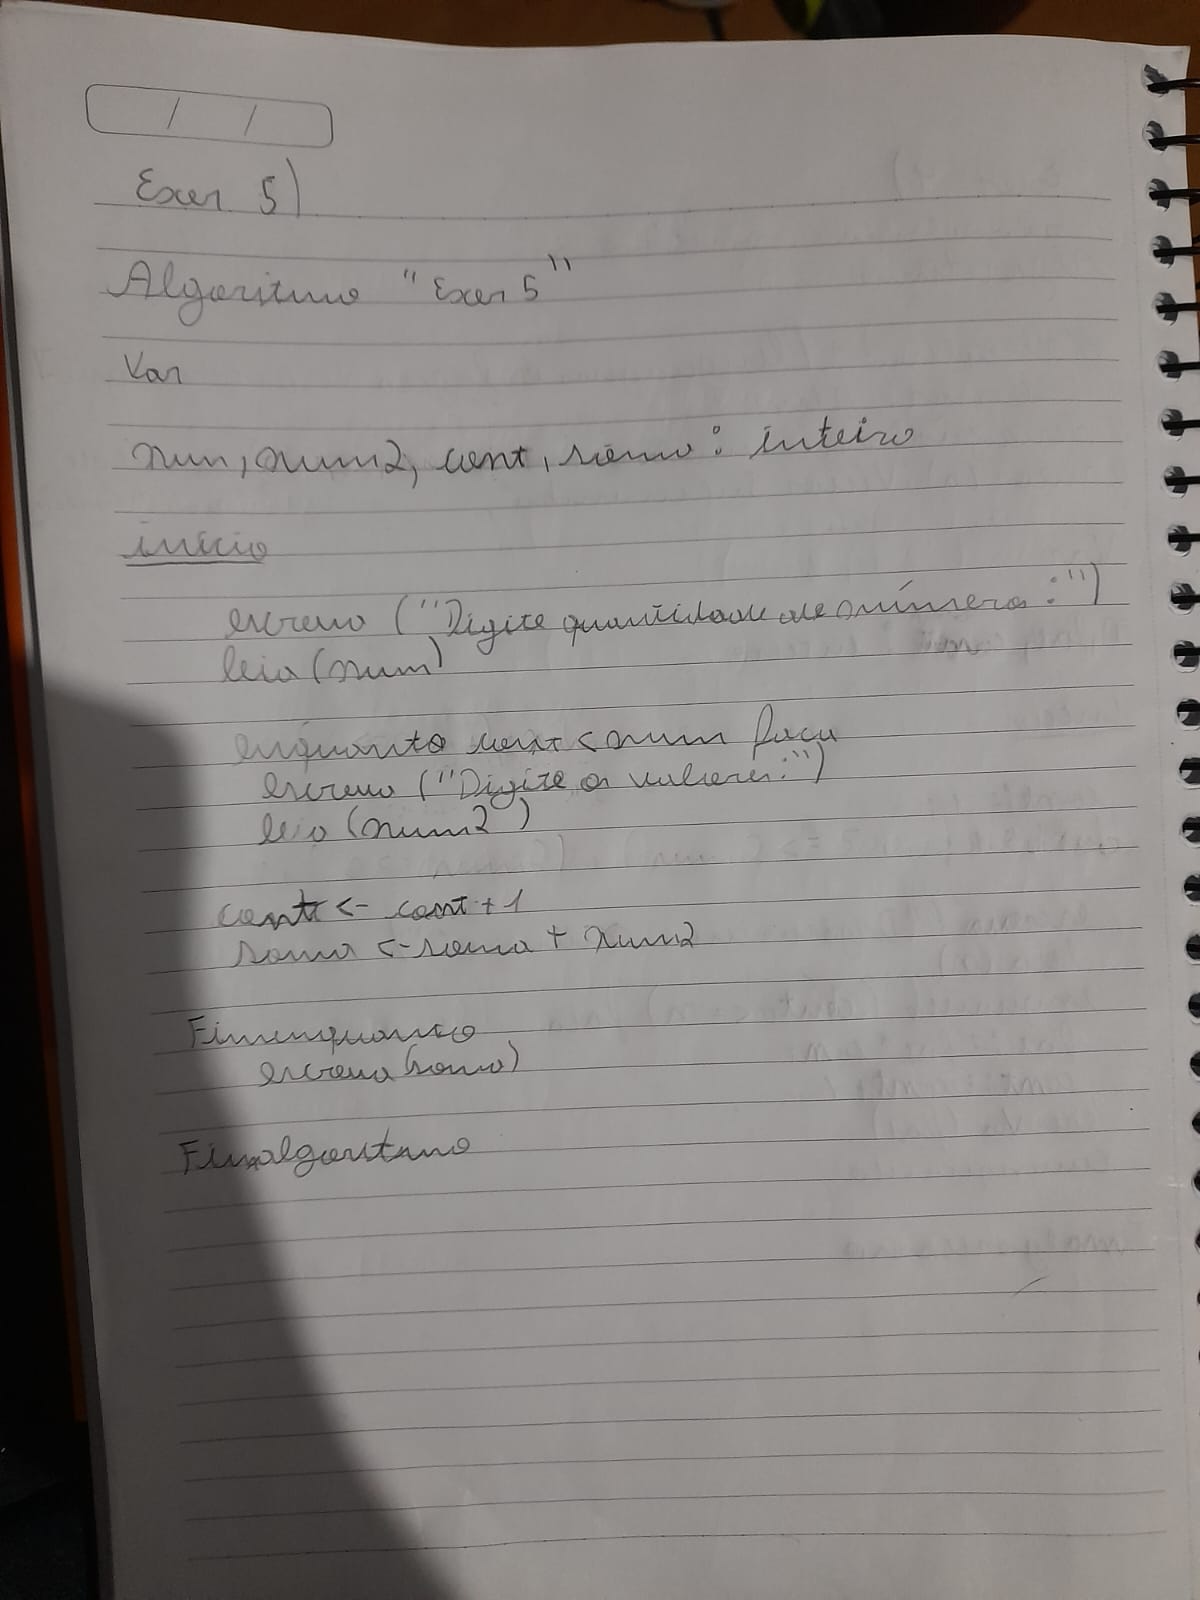 / /
Exer 5)
Algoritmo "Exer 5"
Var
num, num2, cont, soma: inteiro
início
escreva ("Digite quantidade de números:")
leia (num)
enquanto cont < num faca
escreva ("Digite os valores:")
leia (num2)
cont <- cont + 1
soma <- soma + num2
Fimenquanto
escreva (soma)
Fimalgoritmo